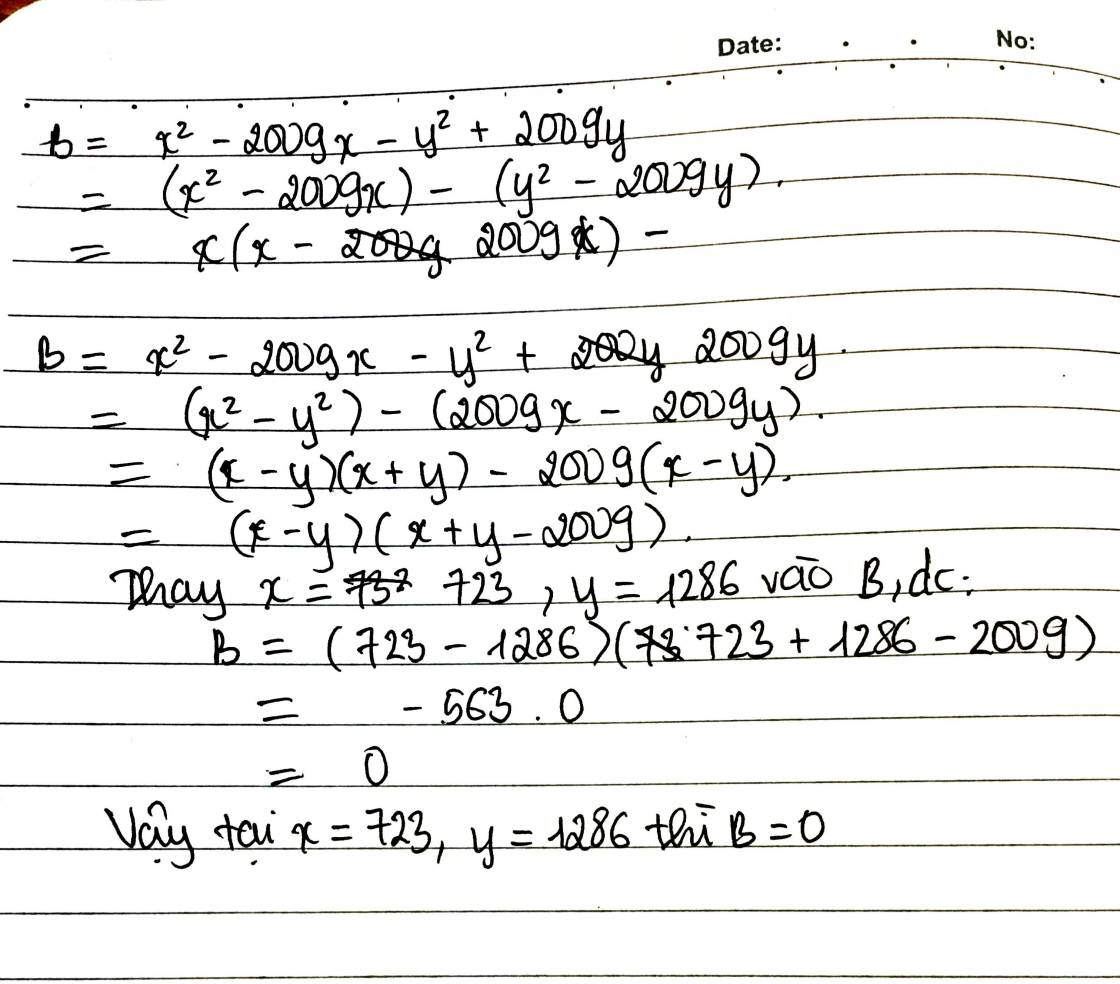 Date: . . No:
B = x² - 2009x - y² + 2009y
= (x² - 2009x) - (y² - 2009y).
= x(x - 2009 2009x) -
B = x² - 2009x - y² + 200y 2009y.
= (x² - y²) - (2009x - 2009y).
= (x - y)(x + y) - 2009(x - y).
= (x - y)(x + y - 2009).
Thay x = 737 723, y = 1286 vào B, dc:
B = (723 - 1286)(73 723 + 1286 - 2009)
= - 563 . 0
= 0
Vậy tại x = 723, y = 1286 thì B = 0